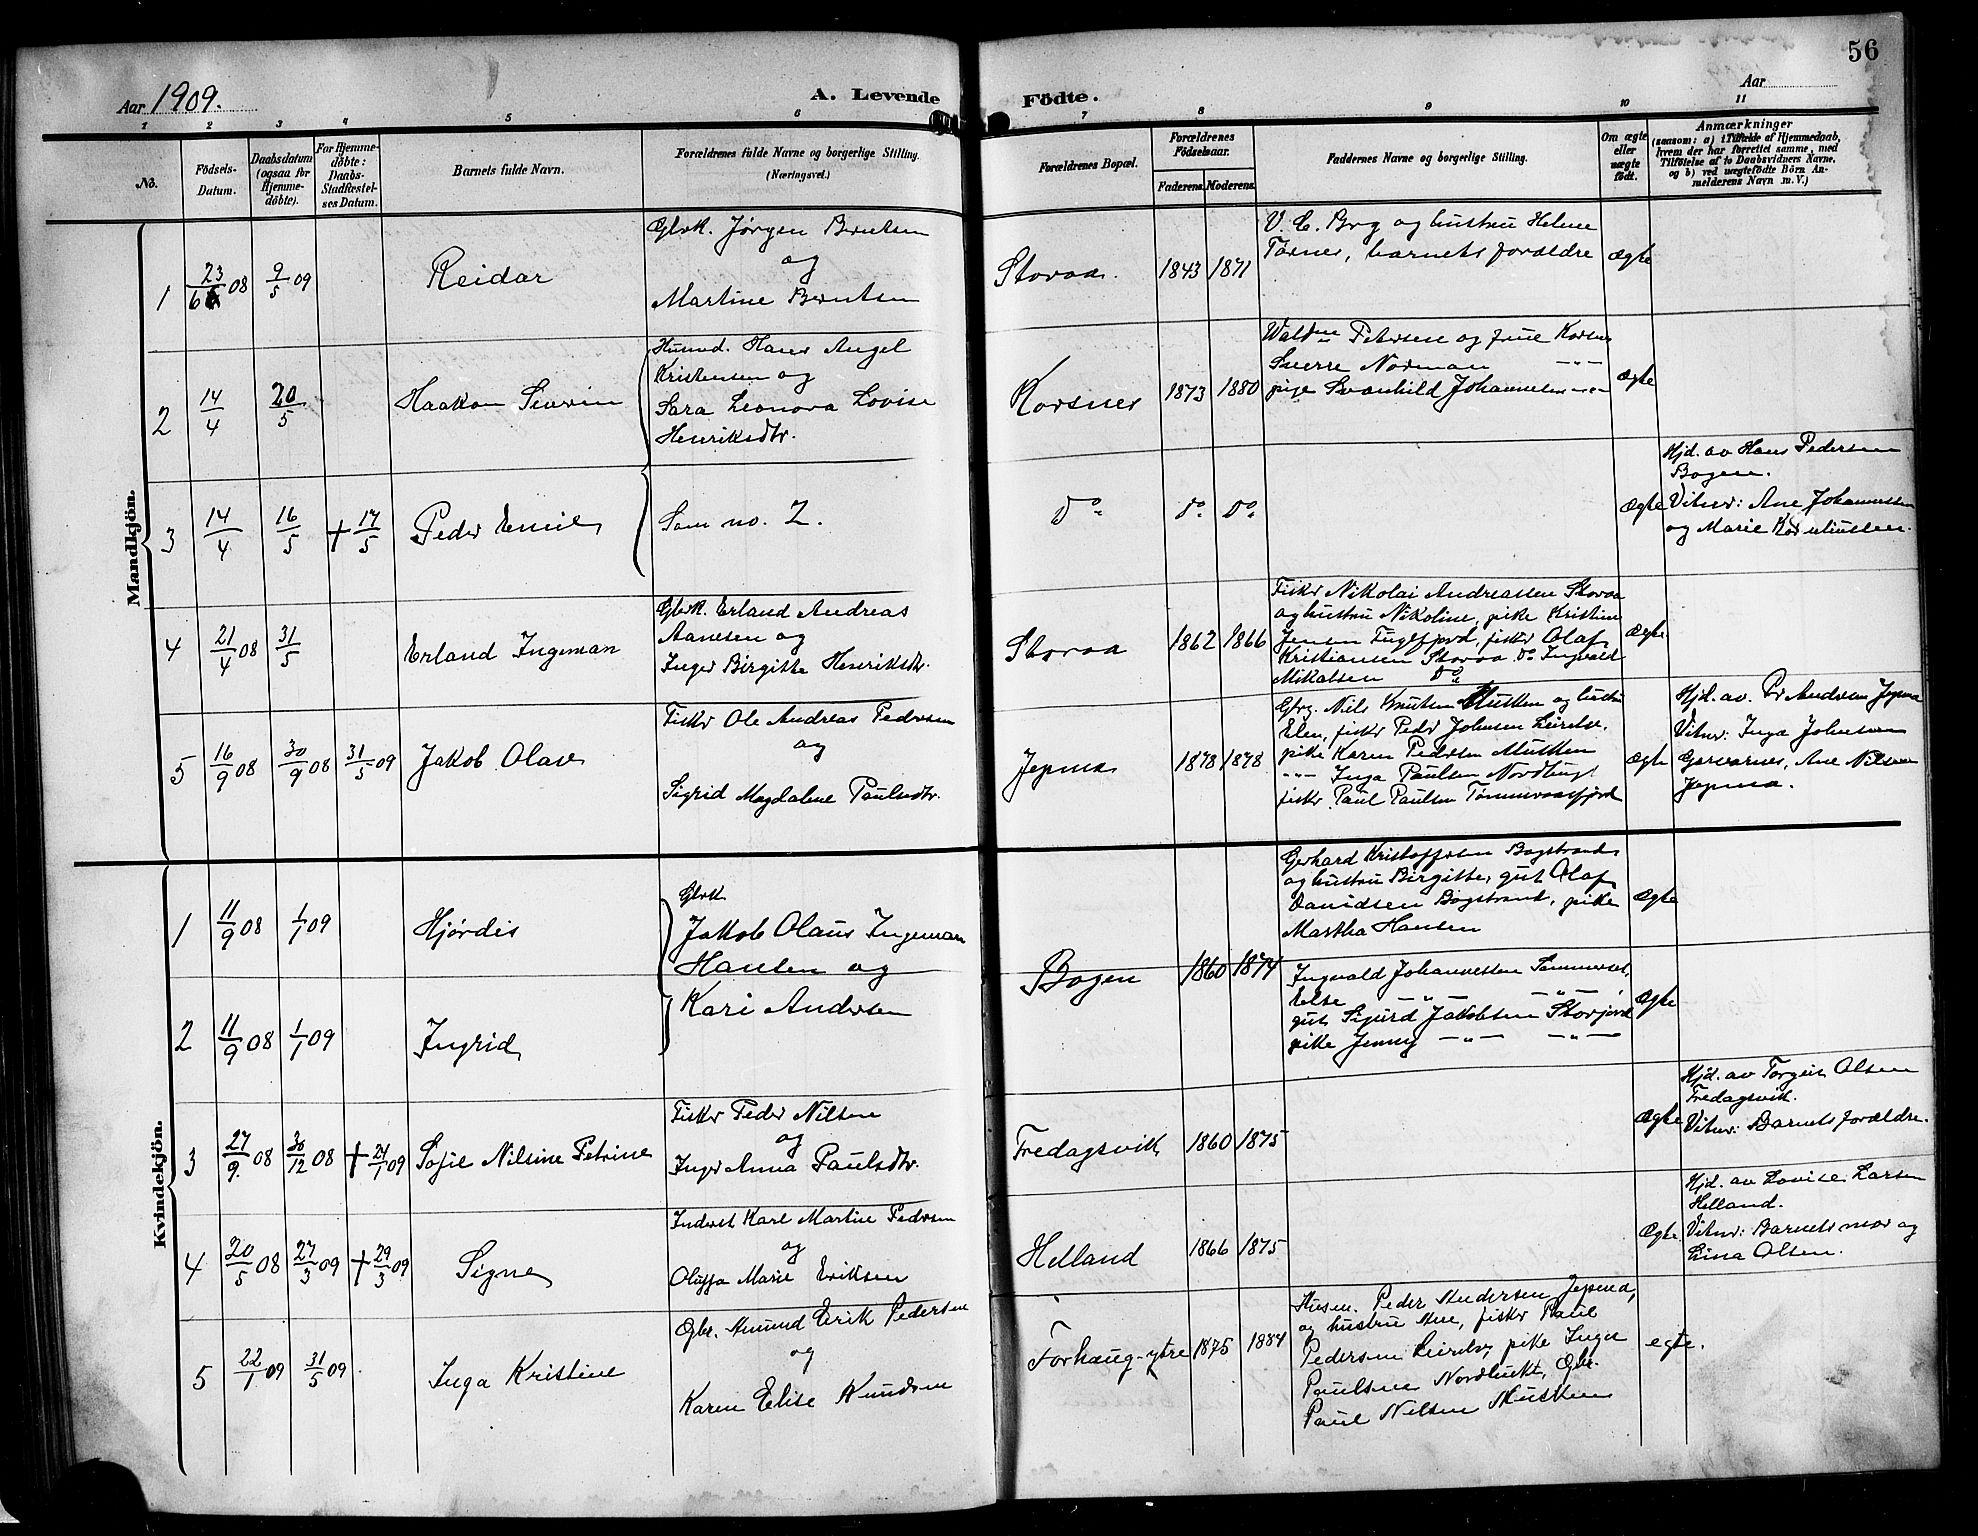 56
Aar 1909.
A. Levende
Födte.
Aar
1 2 3 4 5 6 7 8 9 10 11
No.
Födsels-
Datum.
Daabsdatum
(ogsaa for
Hjemme-
döbte).
For Hjemme-
döbte:
Daabs-
Stadfæstel-
ses Datum.
Barnets fulde Navn.
Forældrenes fulde Navne og borgerlige Stilling.
(Næringsvei.)
Forældrenes Bopæl.
Forældrenes
Födselsaar.
Faderens. Moderens.
Faddernes Navne og borgerlige Stilling.
Om ægte
eller
uægte
födt.
Anmærkninger
(saasom: a) i Tilfælde af Hjemmedaab,
hvem der har forrettet samme, med
Tilföielse af to Daabsvidners Navne,
og b) ved uægtefödte Börn An-
melderens Navn m. V.)
Mandkjön.
1
23/6 08
9/5 09
Reidar
Gbrk. Jørgen Berntsen
og
Martine Berntsen
Storaa.
1843 1871
V. C. Brg og hustru Helene
Tørnes, barnets forældre
Ægte
2
14/4
20/5
Haakon Severin
Husmd. Hans Angel
Kristensen og
Sara Leonora Lovise
Henriksdtr.
Korsnes
1873 1880
Petersen og frue Korsnes
Sverre Norman -"-
pige Svanhild Johannesen -"-
Ægte
3
14/4
16/5
+ 17/5
Peder Emil
Som no. 2.
Do
Do Do
Ægte
Hjd. av Hans Pedersen
Bogen.
Vitner: Ane Johannessen
og Marie
4
21/4 08
31/5
Erland Ingeman
Gbrk. Erland Andreas
Aanesen og
Inger Birgitte Henriksdtr.
Storaa
1862 1866
Fisker Nikolai Andreassen Storaa
og hustru Nikoline, pike Kristine
Jensen Fuglefjord, fisker Olaf
Kristiansen Storaa Do Ingvald
Mikalsen Do
Ægte
5
16/9 08
30/9 08
31/5 09
Jakob Olav
Fisker Ole Andreas Pedersen
og
Sigrid Magdalene Paulsdtr.
Jepma
1878 1878
Gbrg. Nils Knutsen Musken og hustru
Elen, fisker Peder Johnsen Leirelv,
pike Karen Pedersen Musken
-"- Inga Paulsen Nordbugt
fisker Paul Paulsen Tømmeraasfjord
Ægte
Hjd. av. Pr Andersen Jepma
Vitner: Inga Johnsen
Ane Nilsen
Jepma.
Kvindekjön.
1
11/9 08
1/1 09
Hjørdis
Gbrk
Jakob Olaus Ingeman
Hansen og
Kari Andersen
Bogen
1860 1874
Gerhard Kristoffersen Bogstrand
og hustru Birgitte, gut Olaf
Davidsen Bogstrand, pike
Martha Hansen
Ægte
2
11/9 08
1/1 09
Ingrid
Ingvald Johannessen Sommerset,
Else -"- -"-,
gut Sigurd Jakobsen Storjord
pike Jenny -"- -"-
Ægte
3
27/9. 08
30/12 08
+ 24/1 09
Sofie Nilsine Petrine
Fisker Peder Nilsen
og
Inger Anna Paulsdtr.
Fredagsvik
1860 1875
Ægte
Hjd. av Torgeus Olsen
Fredagsvik.
Vitner: Barnets forældre.
4
20/5 08
27/3 09
+ 29/3 09
Signe
Inderst Karl Martin Pedersen
og
Oluffa Marie Eriksen
Helland
1866 1875
Ægte
Hjd. av Lovise Larsen
Helland.
Vitner: Barnets mor og
Lina Olsen.
5
22/1 09
31/5 09
Inga Kristine
Gbr. Amund Erik Pedersen
og
Karen Elise Knudsen
Forhaug-ytre
1875 1884
Husm. Peder Andersen Jepma,
og hustru Ane, fisker Paul
Pedersen Leirelv, pike Inga
Paulsen Nordbukt, Gbr.
Paul Nilsen Musken
egte.